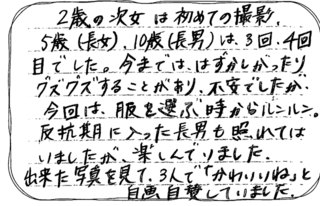 2歳の次女は初めての撮影。
5歳(長女)、10歳(長男)は、3回、4回
目でした。今までは、はずかしかったり
グズグズすることがあり、不安でしたが、
今回は、服を選ぶ時からルンルン。
反抗期に入った長男も照れては
いましたが、楽しんでいました。
出来た写真を見て、3人で「かわいいね」と
自画自賛していました。